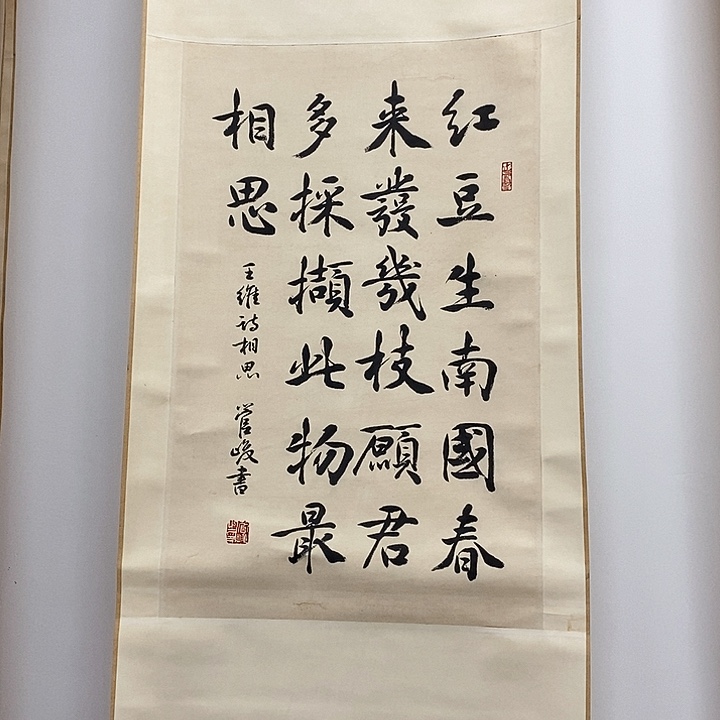 红豆生南國春
来發幾枝願君
多採擷此物最
相思
王維诗相思 管峻書